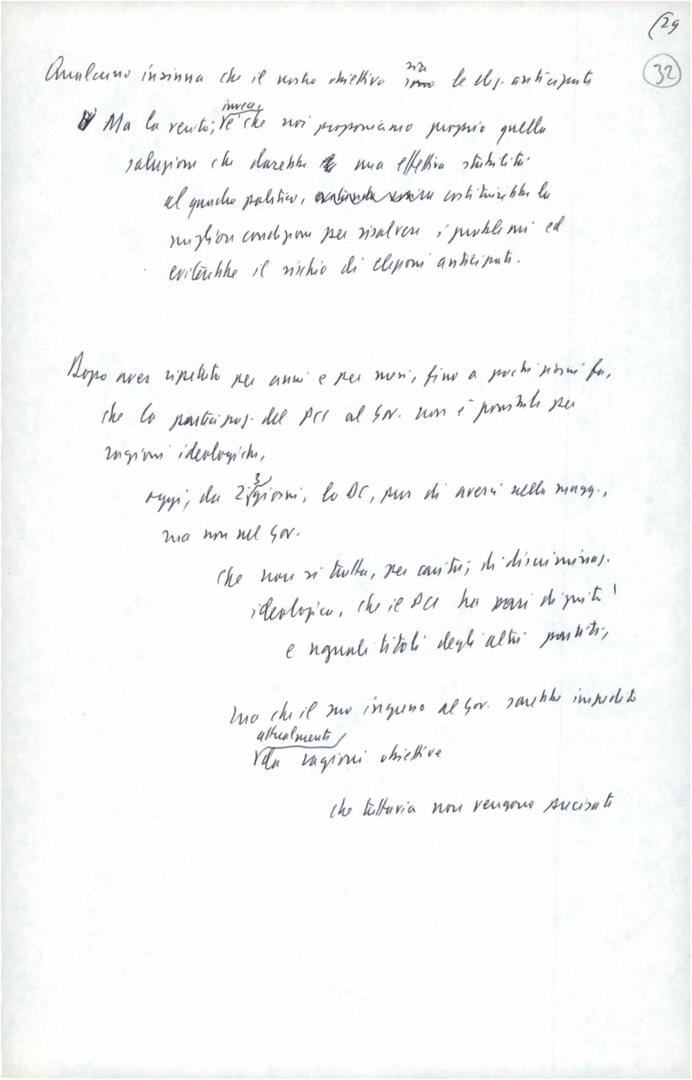 (29
32
Qualcuno insinua che il nostro obiettivo sia le elez. anticipate
Ma la verità invece è che noi proponiamo proprio quella
soluzione che darebbe una effettiva stabilità
al quadro politico, costituirebbe la
migliore condizione per risolvere i problemi ed
eviterebbe il rischio di elezioni anticipate.
Dopo aver ripetuto per anni e per mesi, fino a pochi giorni fa,
che la partecipaz. del PCI al Gov. non è possibile per
ragioni ideologiche,
oggi, da 2-3 giorni, la DC, pur di averci nella magg.,
ma non nel Gov.
che non si tratta, per carità, di discriminaz.
ideologica, che il PCI ha pari dignità
e uguali titoli degli altri partiti,
ma che il suo ingresso al Gov. sarebbe impedito
attualmente da ragioni obiettive
che tuttavia non vengono precisate